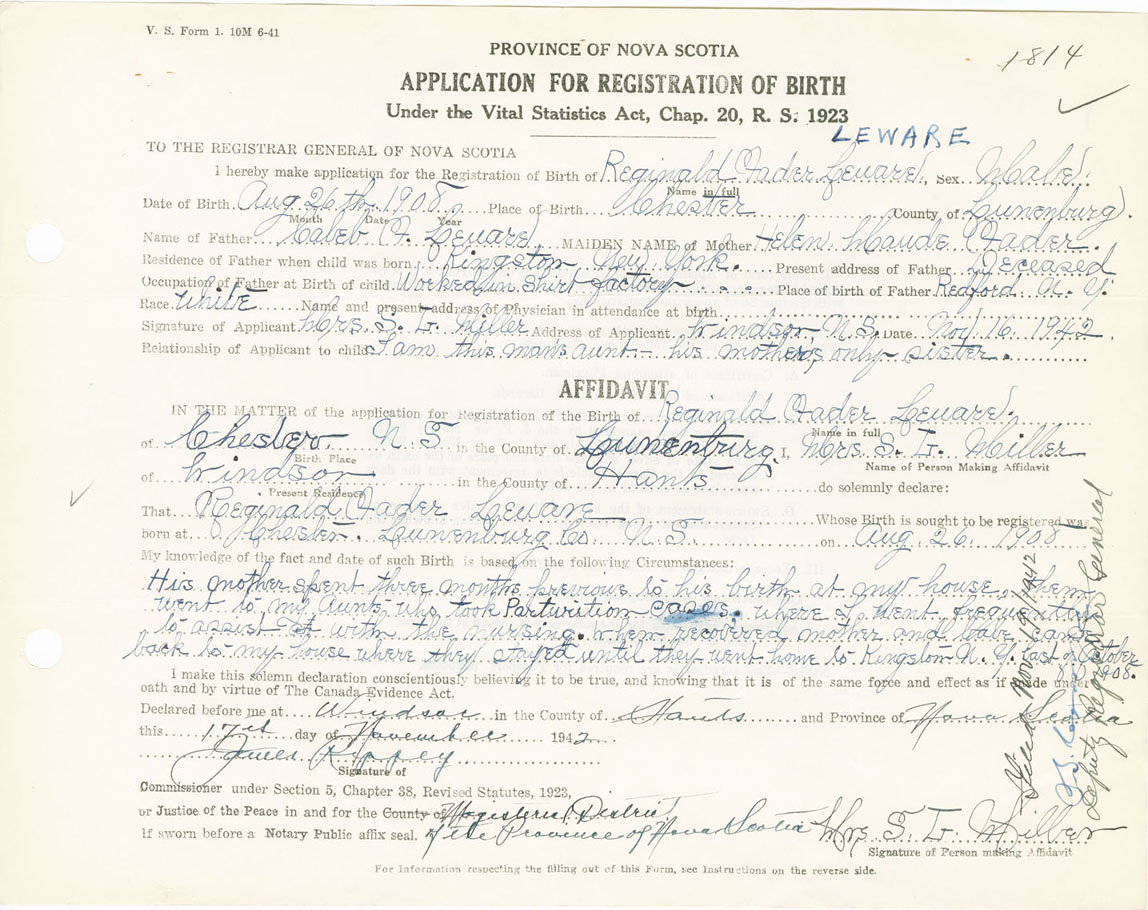 V. S. Form 1. 10M 6-41
PROVINCE OF NOVA SCOTIA
1814
APPLICATION FOR REGISTRATION OF BIRTH
Under the Vital Statistics Act, Chap. 20, R. S. 1923
LEWARE
TO THE REGISTRAR GENERAL OF NOVA SCOTIA
I hereby make application for the Registration of Birth of Reginald Fader Leware, Sex Male.
Name in full
Date of Birth Aug. 26th. 1908, Place of Birth Chester County of Lunenburg.
Month Date Year
Name of Father Caleb F. Leware. MAIDEN NAME of Mother Helen Maude Fader.
Residence of Father when child was born, Kingston, New York. Present address of Father Deceased
Occupation of Father at Birth of child Worked in Shirt factory Place of birth of Father Redford N. Y.
Race White Name and present address of Physician in attendance at birth
Signature of Applicant Mrs. S. L. Miller Address of Applicant Windsor, N.S. Date Nov. 16. 1942
Relationship of Applicant to child I am this man's aunt - his mother's only sister.
AFFIDAVIT
IN THE MATTER of the application for Registration of the Birth of Reginald Fader Leware.
Name in full
of Chester N. S. in the County of Lunenburg, I, Mrs. S. L. Miller
Birth Place Name of Person Making Affidavit
of Windsor in the County of Hants do solemnly declare:
Present Residence
That Reginald Fader Leware Whose Birth is sought to be registered was
born at Chester. Lunenburg Co. N. S. on Aug. 26. 1908
My knowledge of the fact and date of such Birth is based on the following Circumstances:
His mother spent three months previous to his birth at my house, then
went to my Aunts who took Parturition cases. where I went frequently
to assist with the nursing. when recovered mother and babe came
back to my house where they stayed until they went home to Kingston N. Y. last of October
1908.
I make this solemn declaration conscientiously believing it to be true, and knowing that it is of the same force and effect as if made under
oath and by virtue of The Canada Evidence Act.
Declared before me at Windsor in the County of Hants and Province of Nova Scotia
this 17th day of November 1942
James Rippey
Signature of
Commissioner under Section 5, Chapter 38, Revised Statutes, 1923,
or Justice of the Peace in and for the County of Magisterial District
If sworn before a Notary Public affix seal. of the Province of Nova Scotia Mrs. S. L. Miller
Signature of Person making Affidavit
For Information respecting the filling out of this Form, see Instructions on the reverse side.
Filed Nov. 19/1942
Deputy Registrar General